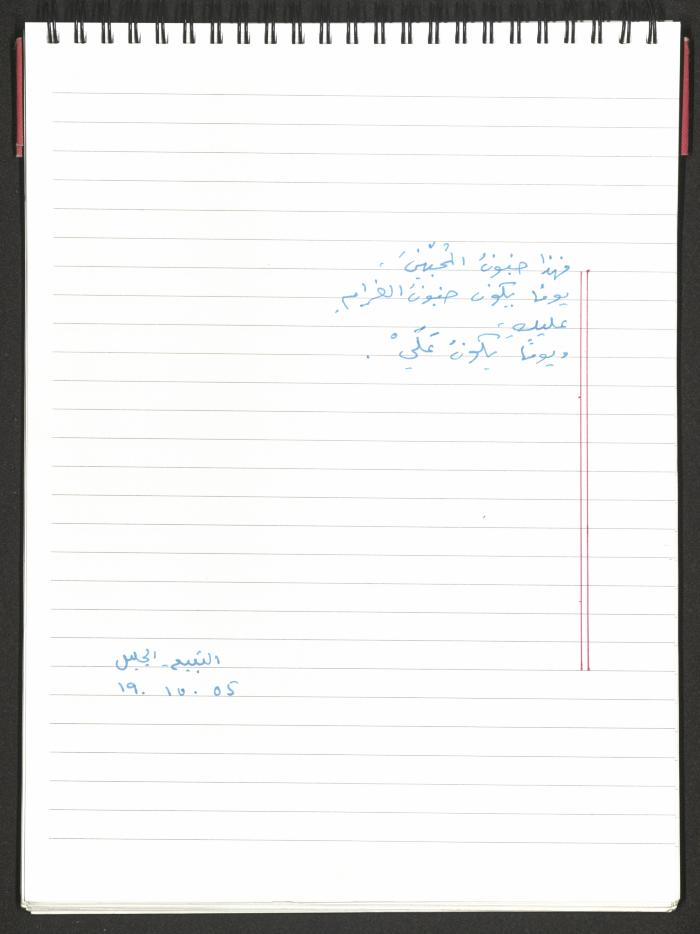 فهذا جنونُ المُحبّينَ،
يومًا يكونُ جنونُ الغرامِ
عليكِ،
ويومًا يكونُ عَلَيْ.
البقيعة - الجليل
١٩. ١٠. ٠٥